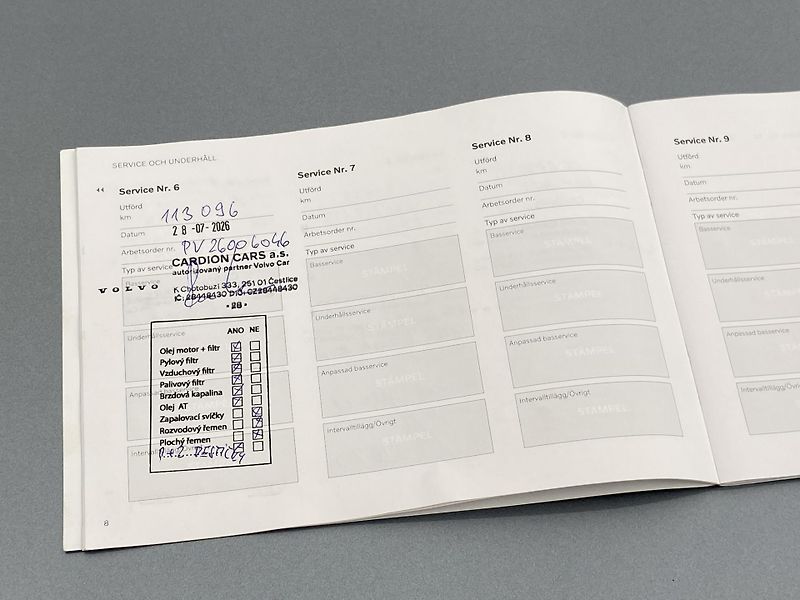 SERVICE OCH UNDERHÅLL
Service Nr. 6
Utförd
km 113 096
Datum 28 -07- 2026
Arbetsorder nr. PV 26006046
Typ av service
CARDION CARS a.s.
autorizovaný partner Volvo Car
VOLVO
K Chotobuzi 333, 251 01 Čestlice
IČ: 28448430 DIČ: CZ28448430
Underhållsservice
ANO NE
Olej motor + filtr
Pylový filtr
Vzduchový filtr
Palivový filtr
Brzdová kapalina
Olej AT
Zapalovací svíčky
Rozvodový řemen
Plochý řemen
8
Service Nr. 7
Utförd
km
Datum
Arbetsorder nr.
Typ av service
Basservice
STÄMPEL
Underhållsservice
STÄMPEL
Anpassad basservice
STÄMPEL
Intervalltillägg/Övrigt
STÄMPEL
Service Nr. 8
Utförd
km
Datum
Arbetsorder nr.
Typ av service
Basservice
STÄMPEL
Underhållsservice
STÄMPEL
Anpassad basservice
STÄMPEL
Intervalltillägg/Övrigt
STÄMPEL
Service Nr. 9
Utförd
km
Datum
Arbetsorder nr.
Typ av service
Basservice
Underhållsservice
Anpassad basservice
Intervalltillägg/Övrigt